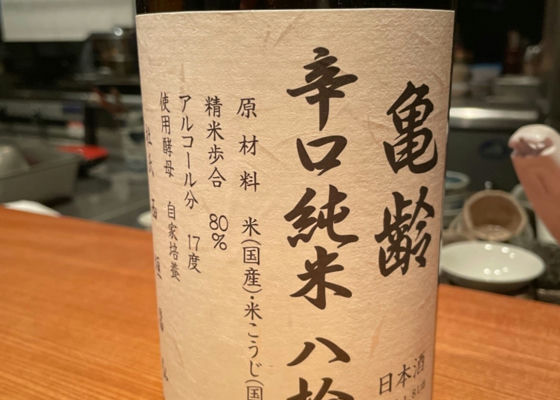 亀齢
辛口純米 八拾
原材料 米(国産)・米こうじ(国
精米歩合 80%
アルコール分 17度
使用酵母 自家培養
日本酒